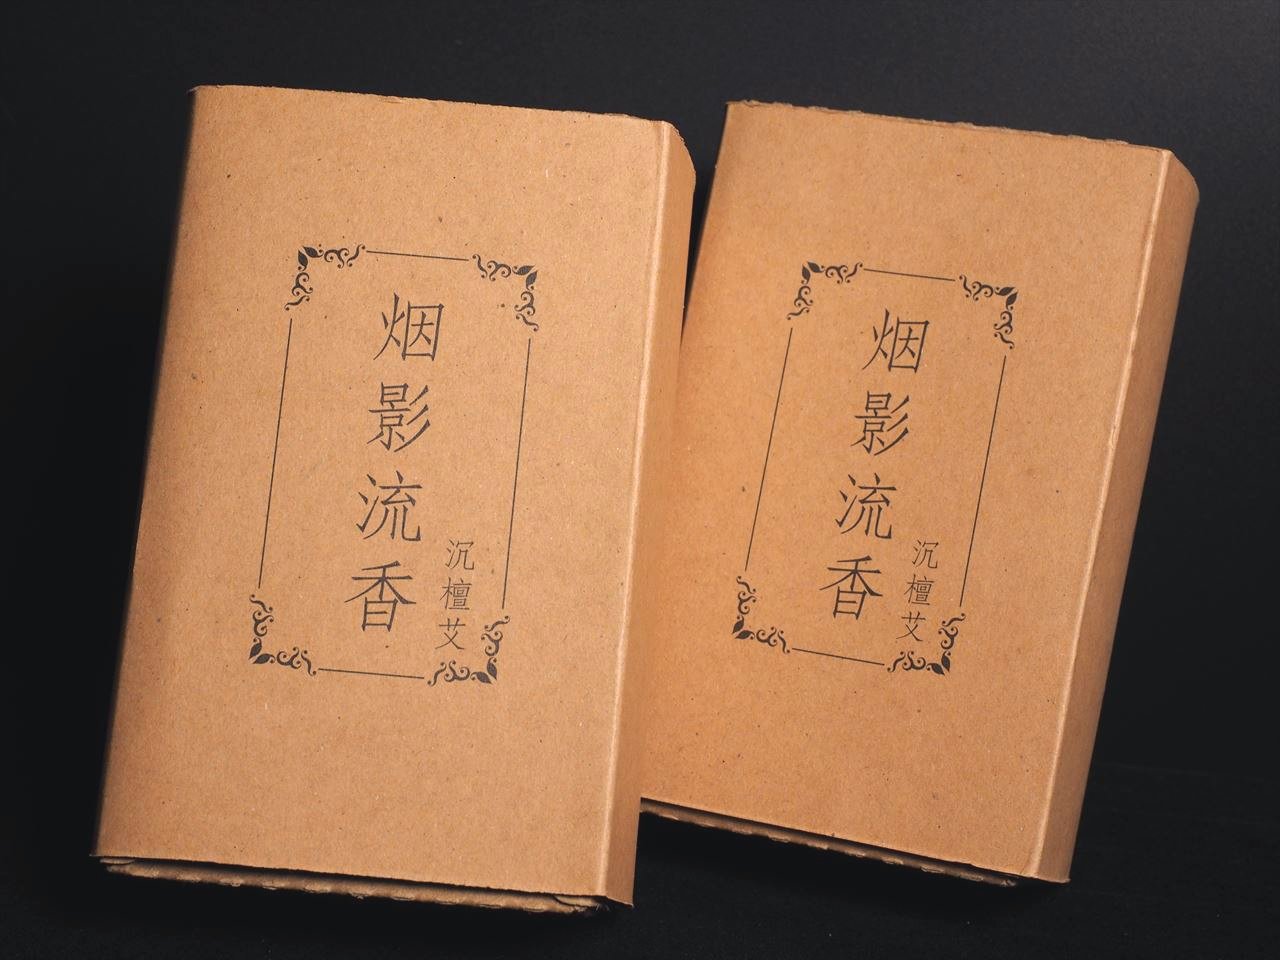 烟影流香
沉檀艾
烟影流香
沉檀艾